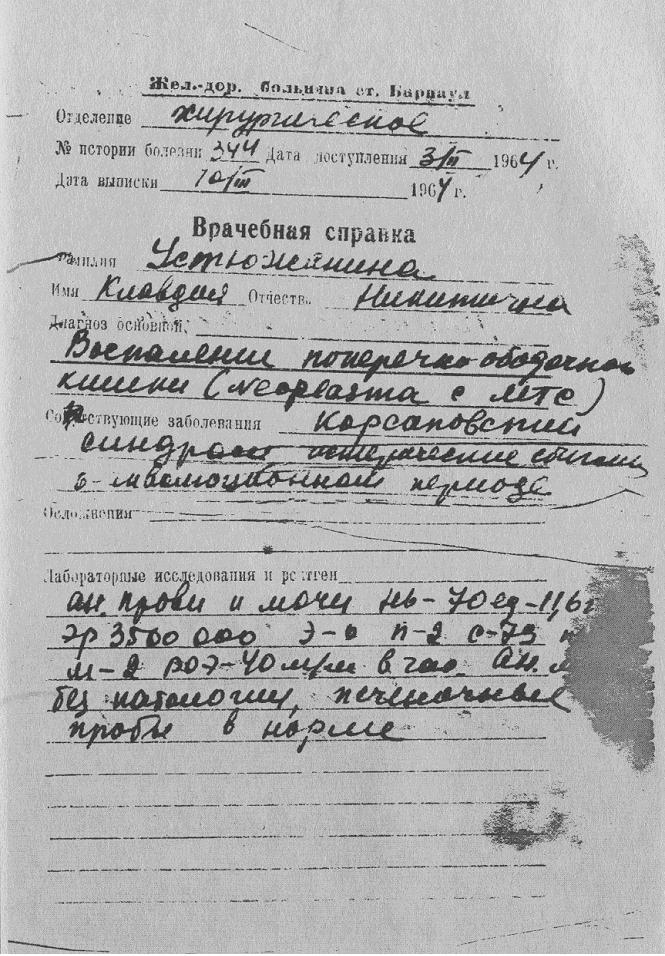 Жел.-дор. больница ст. Барнаул
Отделение хирургическое
№ истории болезни 344 Дата поступления 3/II 1964 г.
Дата выписки 10/III 1964 г.
Врачебная справка
Фамилия Устюжанина
Имя Клавдия Отчеств. Никитична
Диагноз основной,
Воспалении поперечно ободочной
кишки (neoplasma с МТС)
Сопутствующие заболевания Корсаповский
синдром истерические
в инволюционном периоде
Осложнения
Лабораторные исследования и рентген
ан. крови и мочи Hb-70ед-11,6г
Эр 3500 000 Э-0 П-2 С-73
М-2 РОЭ-40 м/м в час. Ан. м
без патологии, печеночные
пробы в норме